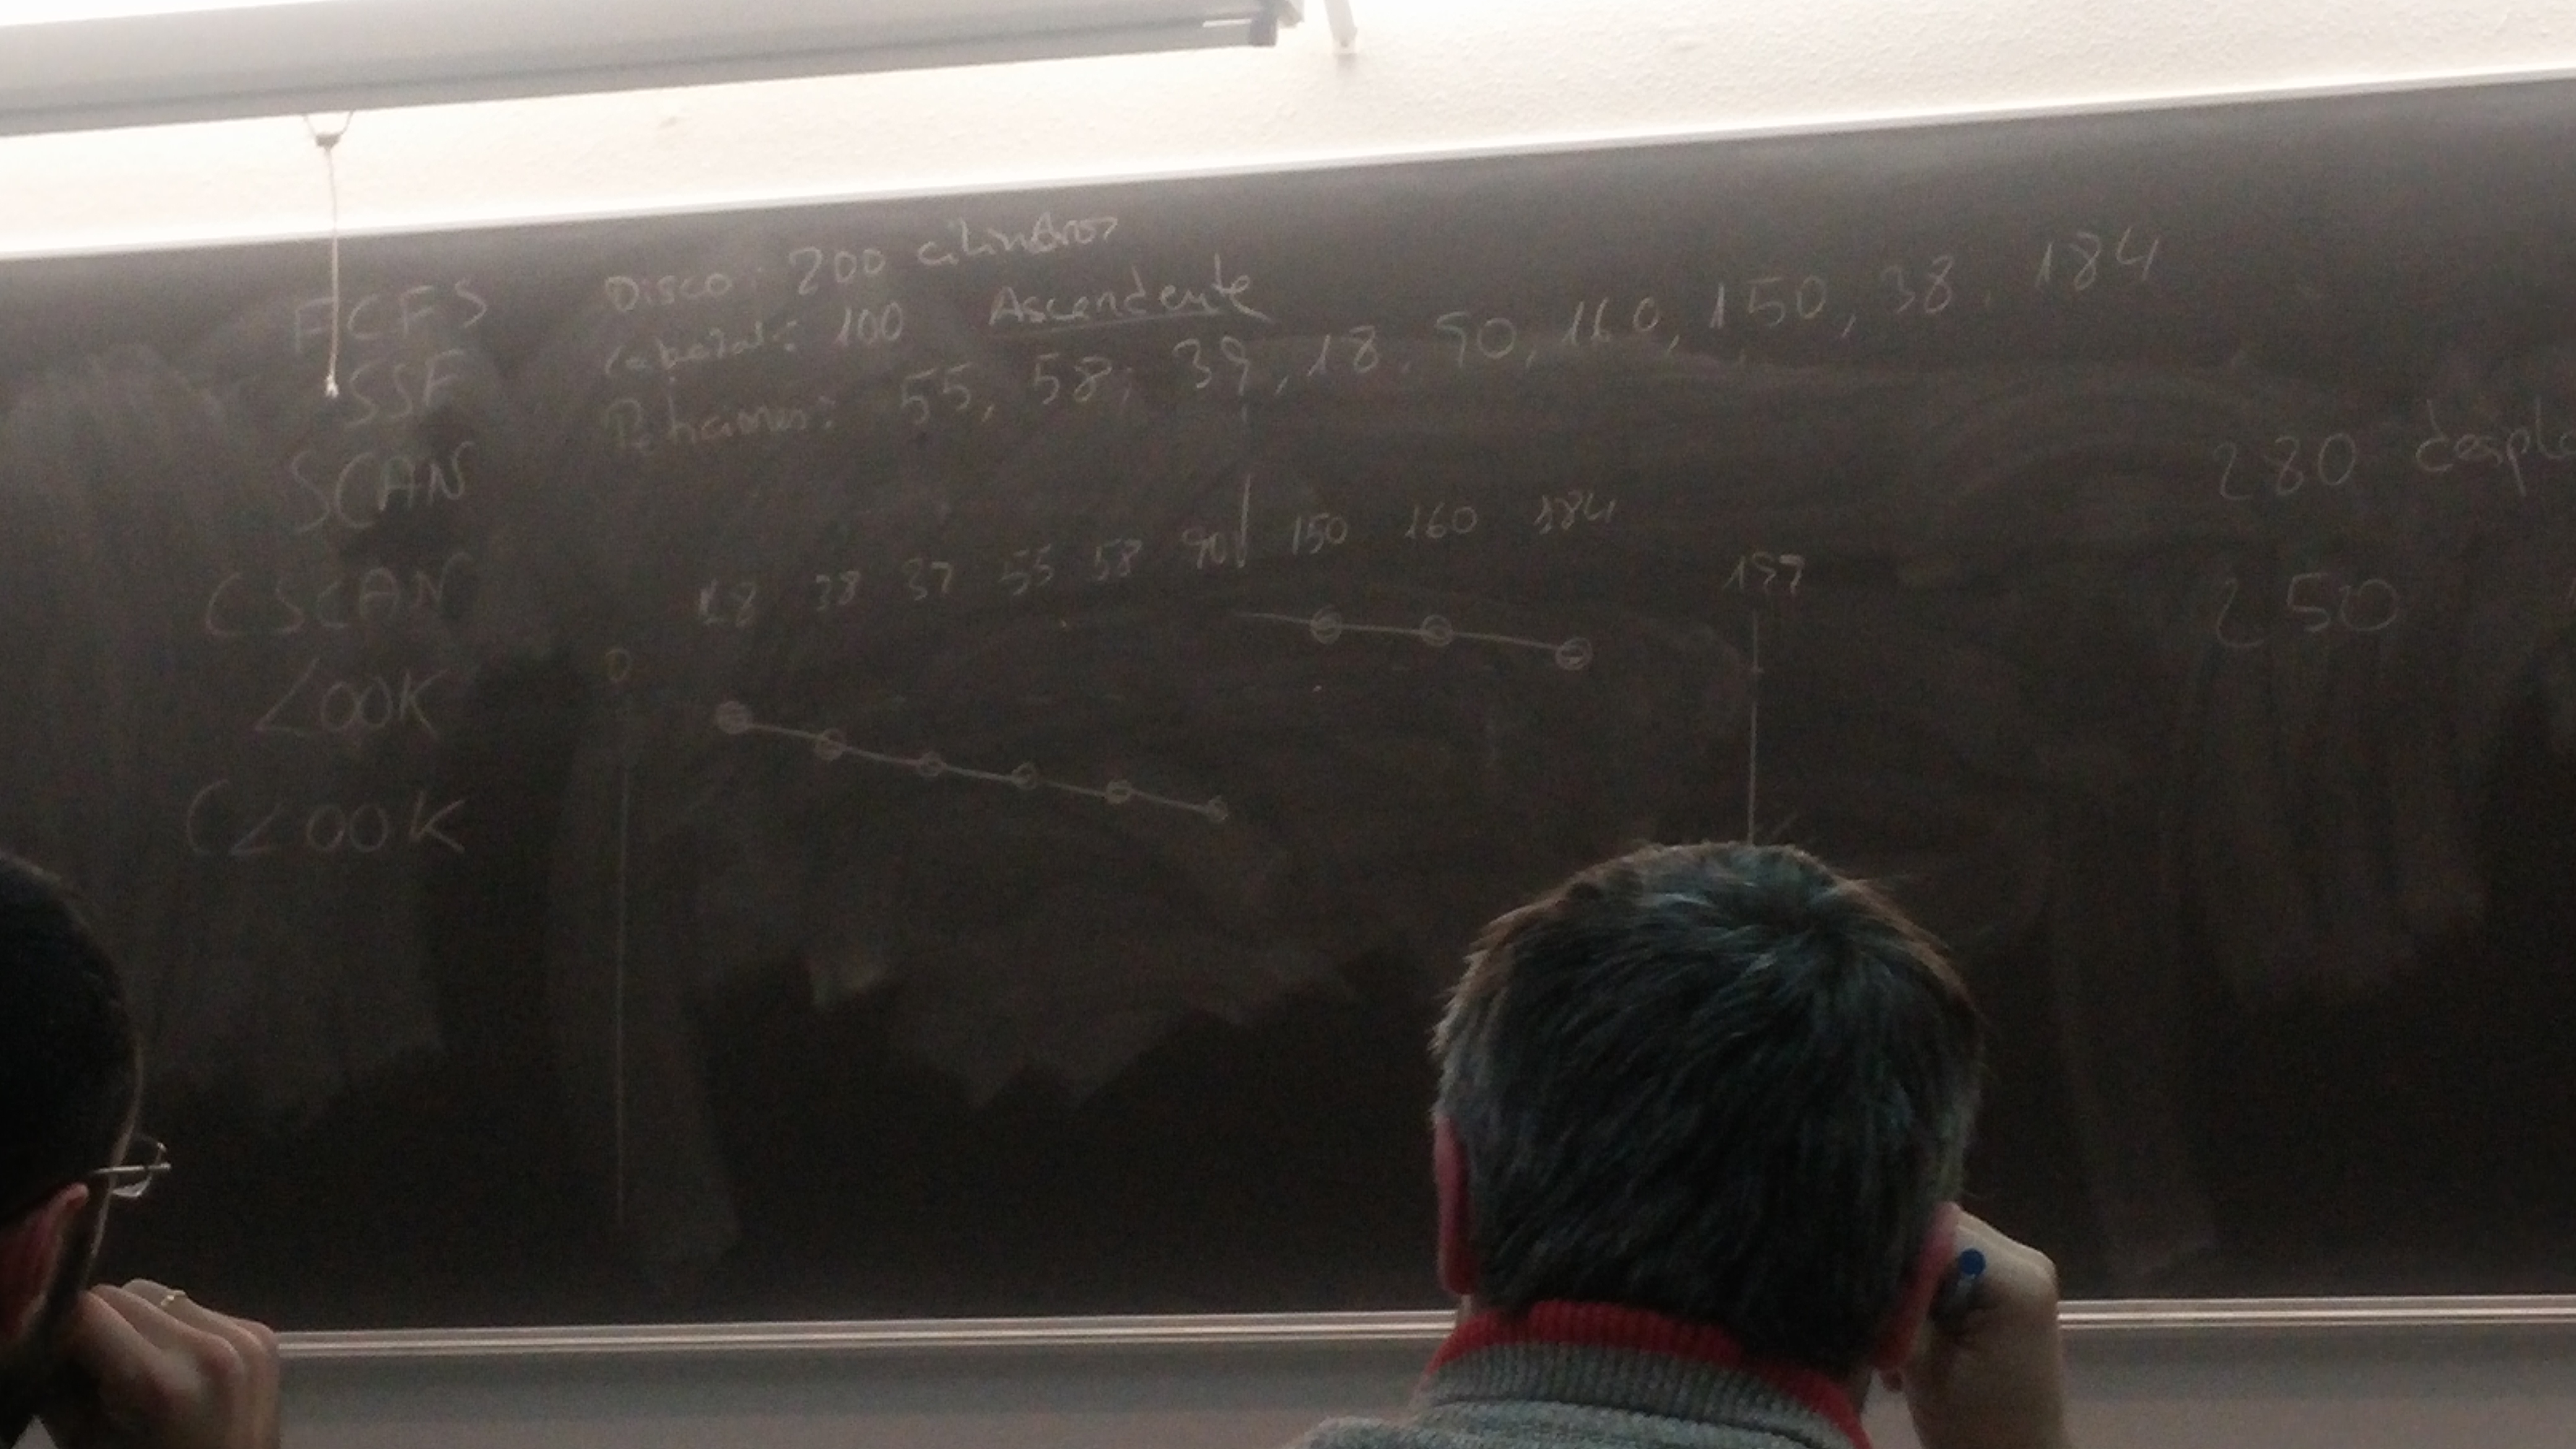 FCFS
SSF
SCAN
CSCAN
LOOK
CLOOK
Disco: 200 cilindros
Cabezal: 100 Ascendente
Peticiones: 55, 58, 39, 18, 90, 160, 150, 38, 184
18 38 39 55 58 90 150 160 184
0
199
280 despla
250